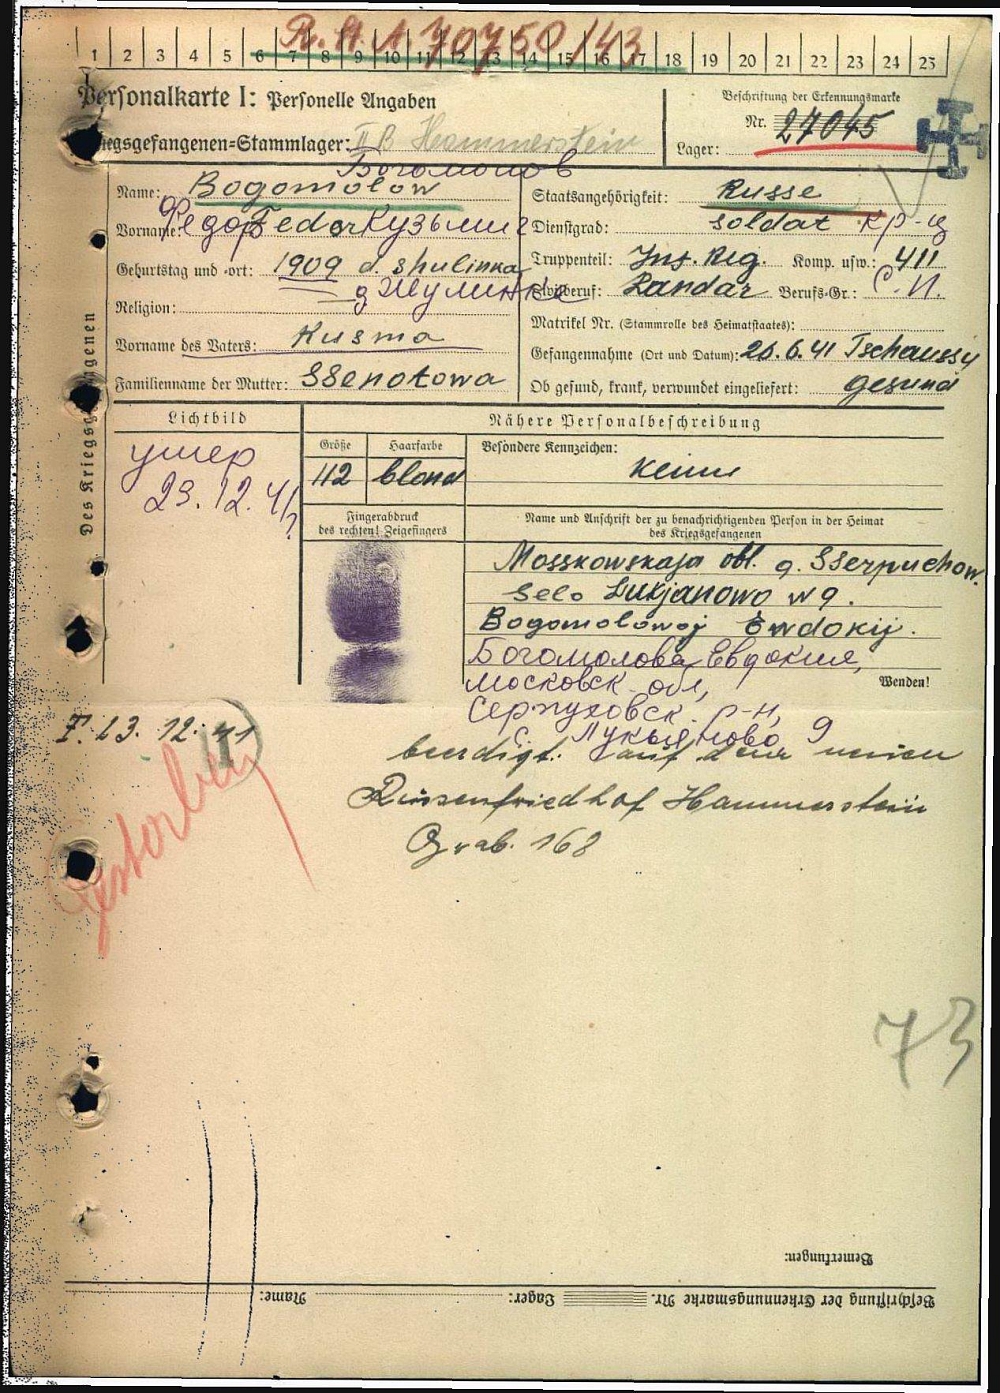 R.H.A. 70750/43
1 2 3 4 5 6 7 8 9 10 11 12 13 14 15 16 17 18 19 20 21 22 23 24 25
Personalkarte I: Personelle Angaben
Beschriftung der Erkennungsmarke
Nr. 27045
Kriegsgefangenen-Stammlager: II B Hammerstein
Lager:
Богомолов
Name: Bogomolow
Staatsangehörigkeit: Russe
Vorname: Федор Fedor Кузьмич
Dienstgrad: Soldat кр-ц
Geburtstag und -ort: 1909 d. Shulinka
Truppenteil: Inf. Reg. Komp. usw.: 411
д Жулинка
Zivilberuf: Berufs-Gr.: С.И.
Religion:
Matrikel Nr. (Stammrolle des Heimatstaates):
Vorname des Vaters: Kusma
Gefangennahme (Ort und Datum): 26.6.41 Tschaussy
Familienname der Mutter: Ssenotowa
Ob gesund, krank, verwundet eingeliefert: gesund
Des Kriegsgefangenen
Lichtbild
Nähere Personalbeschreibung
умер
23.12.41
Größe Haarfarbe Besondere Kennzeichen:
112 blond keine
Fingerabdruck
des rechten! Zeigefingers
Name und Anschrift der zu benachrichtigenden Person in der Heimat
des Kriegsgefangenen
Mosskowskaja obl. g. Sserpuchow.
Selo Lukjanowo w 9.
Bogomolowoj Ewdokij.
Богомолова Евдокия,
Московск обл,
Wenden!
Серпуховск. р-н,
с. Лукьяново 9
T. 23. 12. 41
II
gestorben
beerdigt: auf dem neuen
Russenfriedhof Hammerstein
Grab. 168
73
Bemerkungen:
Beschriftung der Erkennungsmarke Nr. Lager: Name: